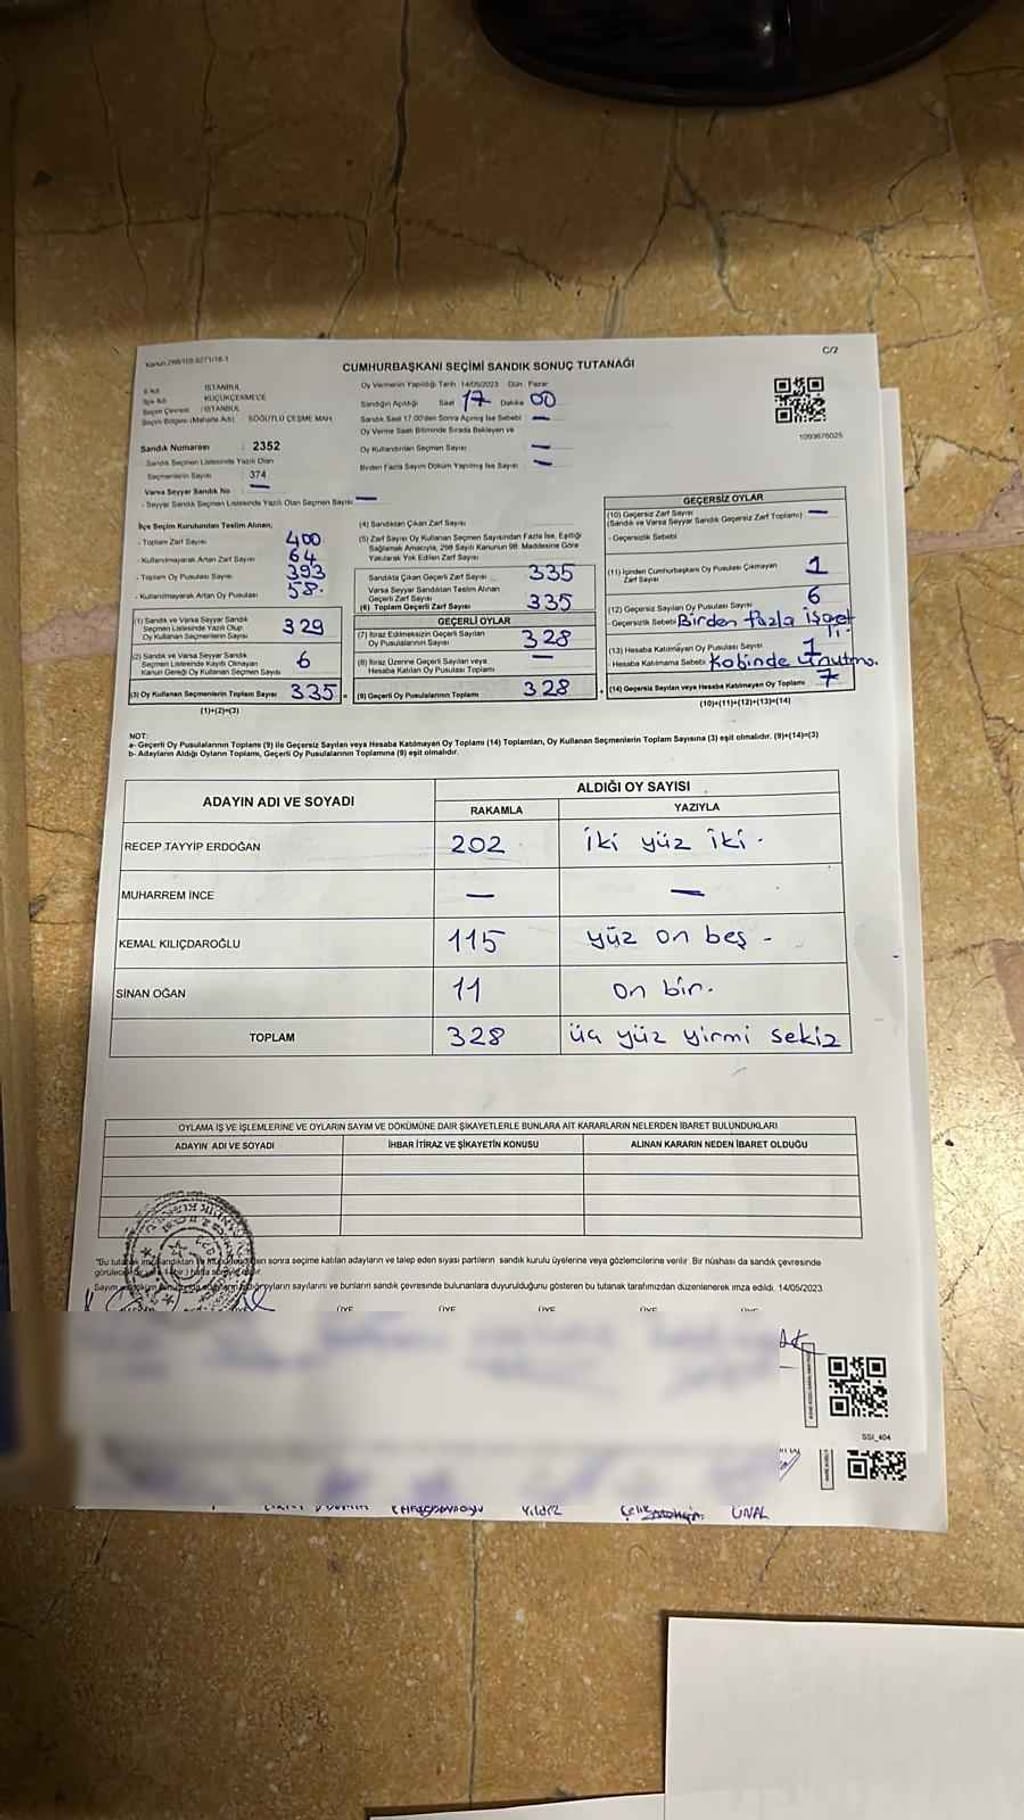 C/2
CUMHURBAŞKANI SEÇİMİ SANDIK SONUÇ TUTANAĞI
İSTANBUL
KÜÇÜKÇEKMECE
İSTANBUL
SÖĞÜTLÜ ÇEŞME MAH.
Oy Vermenin Yapıldığı Tarih 14/05/2023 Gün Pazar
Sandığın Açıldığı Saat 17 Dakika 00
Sandık Saat 17.00'den Sonra Açılmış İse Sebebi —
Oy Verme Saati Bitiminde Sırada Bekleyen ve
Oy Kullandırılan Seçmen Sayısı —
Birden Fazla Sayım Döküm Yapılmış İse Sayısı —
1093676025
Sandık Numarası 2352
Sandık Seçmen Listesinde Yazılı Olan
Seçmenlerin Sayısı 374
Varsa Seyyar Sandık No —
- Seyyar Sandık Seçmen Listesinde Yazılı Olan Seçmen Sayısı —
İlçe Seçim Kurulundan Teslim Alınan;
- Toplam Zarf Sayısı 400
- Kullanılmayarak Artan Zarf Sayısı 64
- Toplam Oy Pusulası Sayısı 393
- Kullanılmayarak Artan Oy Pusulası 58.
(1) Sandık ve Varsa Seyyar Sandık
Seçmen Listesinde Yazılı Olup
Oy Kullanan Seçmenlerin Sayısı 329
(2) Sandık ve Varsa Seyyar Sandık
Seçmen Listesinde Kayıtlı Olmayan
Kanun Gereği Oy Kullanan Seçmen Sayısı 6
(3) Oy Kullanan Seçmenlerin Toplam Sayısı 335
(1)+(2)=(3)
(4) Sandıktan Çıkan Zarf Sayısı
(5) Zarf Sayısı Oy Kullanan Seçmen Sayısından Fazla İse, Eşitliği
Sağlamak Amacıyla, 298 Sayılı Kanunun 98. Maddesine Göre
Yakılarak Yok Edilen Zarf Sayısı
Sandıkta Çıkan Geçerli Zarf Sayısı 335
Varsa Seyyar Sandıktan Teslim Alınan
Geçerli Zarf Sayısı
(6) Toplam Geçerli Zarf Sayısı 335
GEÇERLİ OYLAR
(7) İtiraz Edilmeksizin Geçerli Sayılan
Oy Pusulalarının Sayısı 328
(8) İtiraz Üzerine Geçerli Sayılan veya
Hesaba Katılan Oy Pusulası Toplamı —
(9) Geçerli Oy Pusulalarının Toplamı 328
GEÇERSİZ OYLAR
(10) Geçersiz Zarf Sayısı
(Sandık ve Varsa Seyyar Sandık Geçersiz Zarf Toplamı) —
- Geçersizlik Sebebi
(11) İçinden Cumhurbaşkanı Oy Pusulası Çıkmayan
Zarf Sayısı 1
(12) Geçersiz Sayılan Oy Pusulası Sayısı 6
- Geçersizlik Sebebi Birden fazla işaret
(13) Hesaba Katılmayan Oy Pusulası Sayısı
- Hesaba Katılmama Sebebi Kabinde Unutma.
(14) Geçersiz Sayılan veya Hesaba Katılmayan Oy Toplamı 7
(10)+(11)+(12)+(13)=(14)
NOT:
a- Geçerli Oy Pusulalarının Toplamı (9) ile Geçersiz Sayılan veya Hesaba Katılmayan Oy Toplamı (14) Toplamları, Oy Kullanan Seçmenlerin Toplam Sayısına (3) eşit olmalıdır. (9)+(14)=(3)
b- Adayların Aldığı Oyların Toplamı, Geçerli Oy Pusulalarının Toplamına (9) eşit olmalıdır.
ADAYIN ADI VE SOYADI
ALDIĞI OY SAYISI
RAKAMLA YAZIYLA
RECEP TAYYİP ERDOĞAN 202 iki yüz iki.
MUHARREM İNCE — —
KEMAL KILIÇDAROĞLU 115 yüz on beş -
SİNAN OĞAN 11 on bir.
TOPLAM 328 üç yüz yirmi sekiz
OYLAMA İŞ VE İŞLEMLERİNE VE OYLARIN SAYIM VE DÖKÜMÜNE DAİR ŞİKAYETLERLE BUNLARA AİT KARARLARIN NELERDEN İBARET BULUNDUKLARI
ADAYIN ADI VE SOYADI İHBAR İTİRAZ VE ŞİKAYETİN KONUSU ALINAN KARARIN NEDEN İBARET OLDUĞU
sonra seçime katılan adayların ve talep eden siyasi partilerin sandık kurulu üyelerine veya gözlemcilerine verilir. Bir nüshası da sandık çevresinde
oyların sayılarını ve bunların sandık çevresinde bulunanlara duyurulduğunu gösteren bu tutanak tarafımızdan düzenlenerek imza edildi. 14/05/2023
ÜYE ÜYE ÜYE ÜYE
SSI_404
Yıldız
ÜNAL